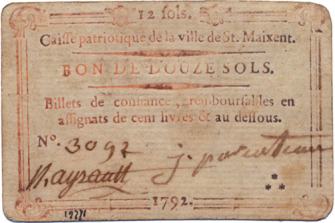 12 sols.
Caisse patriotique de la ville de St. Maixent.
BON DE DOUZE SOLS.
Billets de confiance, remboursables en
assignats de cent livres & au dessous.
N°. 3092
Mayrault
1792.